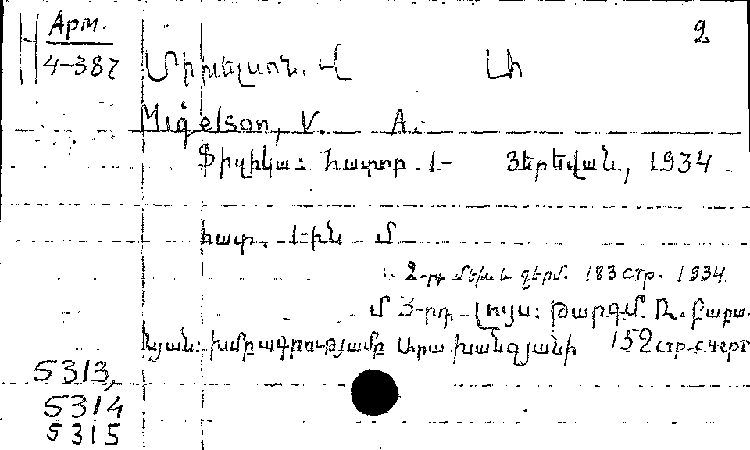 Арм.
2
4-387 Միխելսոն. Վ Ա
Miqelson, V. A.
Ֆիզիկա: Հատոր 1- Յերեվան, 1934
հատ. 1-ին մ
2-րդ մեխ և ջերմ. 183 стр. 1934
մ 3-րդ լույս: Թարգմ. Ռ. Քաբա-
նյան: խմբագրությամբ Արա Խանզյանի 152 стр. с черт
5313,
5314
5315